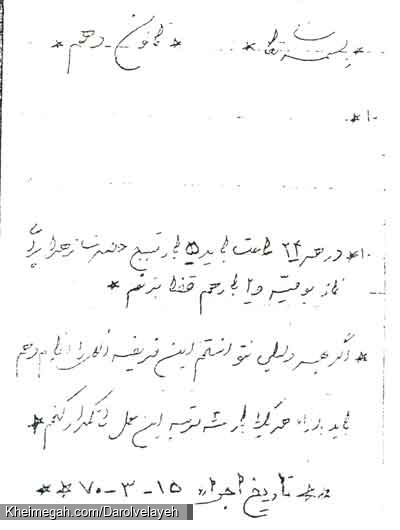 * بسمه تعالی * * قانون دهم *
۱۰*
۱۰* در هر ۲۴ ساعت باید ۵ بار تسبیح حضرت زهرا برای
نماز یومیه و یا بار هم قضا بزنم *
* اگر به هر دلیلی نتوانستم این فریضه الهی را انجام دهم
باید به ازاء هر یکبار سه مرتبه این عمل را تکرار کنم *
** تاریخ اجراء ۱۵-۳-۷۰ **
Kheimegah.com/Darolvelayeh